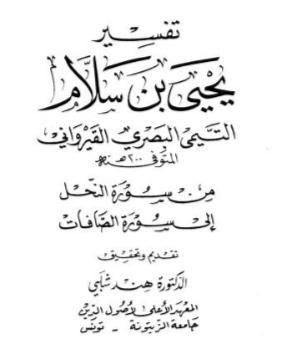 تفسير
يحيى بن سلام
التيمي البصري القيرواني
المتوفى ٢٠٠ هـ
من سورة النحل
إلى سورة الصافات
تقديم وتحقيق
الدكتورة هند شلبي
المعهد الأعلى لأصول الدين
جامعة الزيتونة - تونس